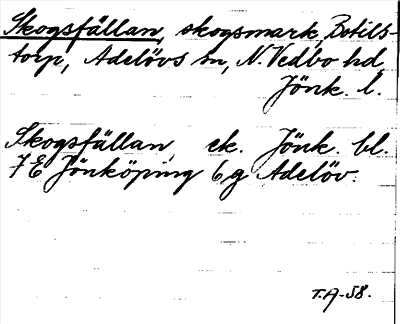 Skogsfällan, skogsmark, Botils-
torp, Adelövs sn, N. Vedbo hd,
Jönk. l.
Skogsfällan, ek. Jönk. bl.
7 E Jönköping 6 g Adelöv.
T.A-58.